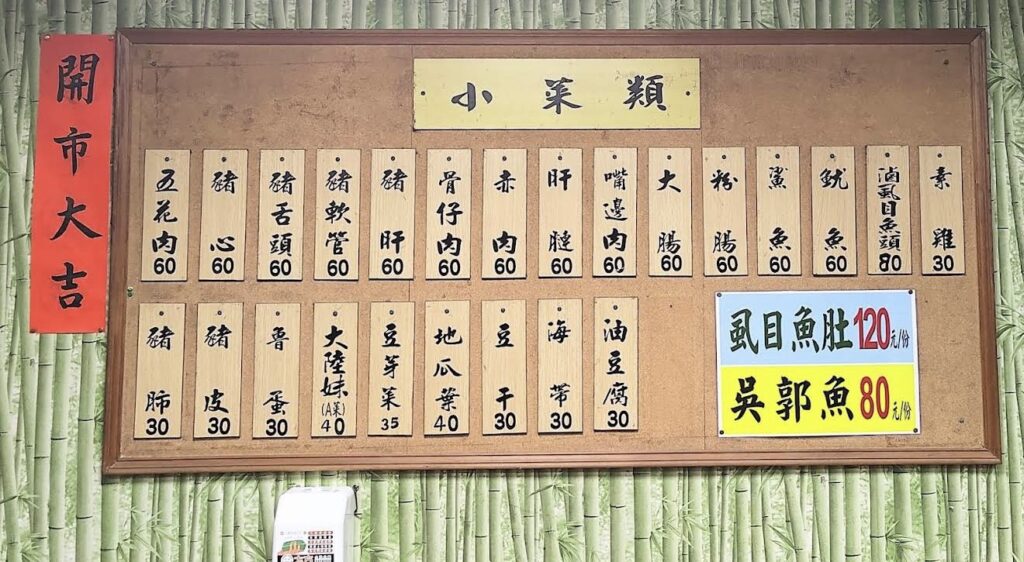 開市大吉
小菜類
五花肉 60
豬心 60
豬舌頭 60
豬軟管 60
豬肝 60
骨仔肉 60
赤肉 60
肝腱 60
嘴邊肉 60
大腸 60
粉腸 60
鯊魚 60
魷魚 60
滷虱目魚頭 80
素雞 30
豬肺 30
豬皮 30
魯蛋 30
大陸妹(A菜) 40
豆芽菜 35
地瓜葉 40
豆干 30
海帶 30
油豆腐 30
虱目魚肚120元/份
吳郭魚80元/份